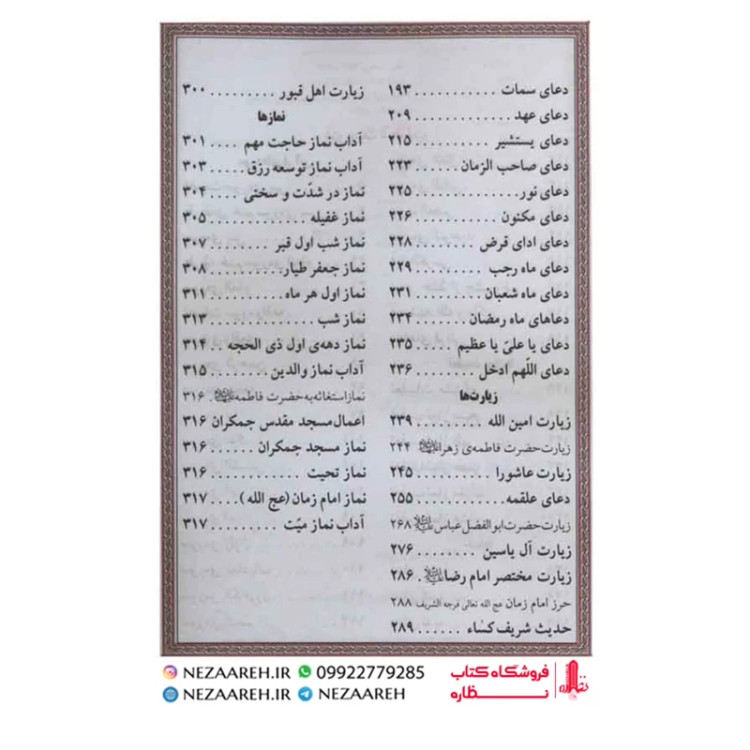 دعای سمات ............ ۱۹۳
دعای عهد ............ ۲۰۹
دعای یستشیر ......... ۲۱۵
دعای صاحب الزمان ...... ۲۲۳
دعای نور ............ ۲۲۵
دعای مکنون .......... ۲۲۶
دعای ادای قرض ....... ۲۲۸
دعای ماه رجب ........ ۲۲۹
دعای ماه شعبان ....... ۲۳۱
دعاهای ماه رمضان ..... ۲۳۴
دعای یا علیّ یا عظیم .... ۲۳۵
دعای اللّهم ادخل ....... ۲۳۶
زیارت‌ها
زیارت امین الله ........ ۲۳۹
زیارت حضرت فاطمه‌ی زهرا ۲۴۴
زیارت عاشورا ......... ۲۴۵
دعای علقمه .......... ۲۵۵
زیارت حضرت ابوالفضل عباس ۲۶۸
زیارت آل یاسین ........ ۲۷۶
زیارت مختصر امام رضا . ۲۸۶
حرز امام زمان عج الله تعالی فرجه الشریف ۲۸۸
حدیث شریف کساء ...... ۲۸۹
زیارت اهل قبور ......... ۳۰۰
نمازها
آداب نماز حاجت مهم .... ۳۰۱
آداب نماز توسعه رزق .... ۳۰۳
نماز در شدّت و سختی .... ۳۰۴
نماز غفیله ............ ۳۰۵
نماز شب اول قبر ....... ۳۰۷
نماز جعفر طیار ........ ۳۰۸
نماز اول هر ماه ........ ۳۱۱
نماز شب ............ ۳۱۳
نماز دهه‌ی اول ذی الحجه .. ۳۱۴
آداب نماز والدین ....... ۳۱۵
نماز استغاثه به حضرت فاطمه . ۳۱۶
اعمال مسجد مقدس جمکران ۳۱۶
نماز مسجد جمکران ...... ۳۱۶
نماز تحیت ........... ۳۱۶
نماز امام زمان (عج الله) .... ۳۱۷
آداب نماز میّت ......... ۳۱۷
NEZAAREH.IR 09922779285
NEZAAREH.IR NEZAAREH
فروشگاه کتاب
نظاره